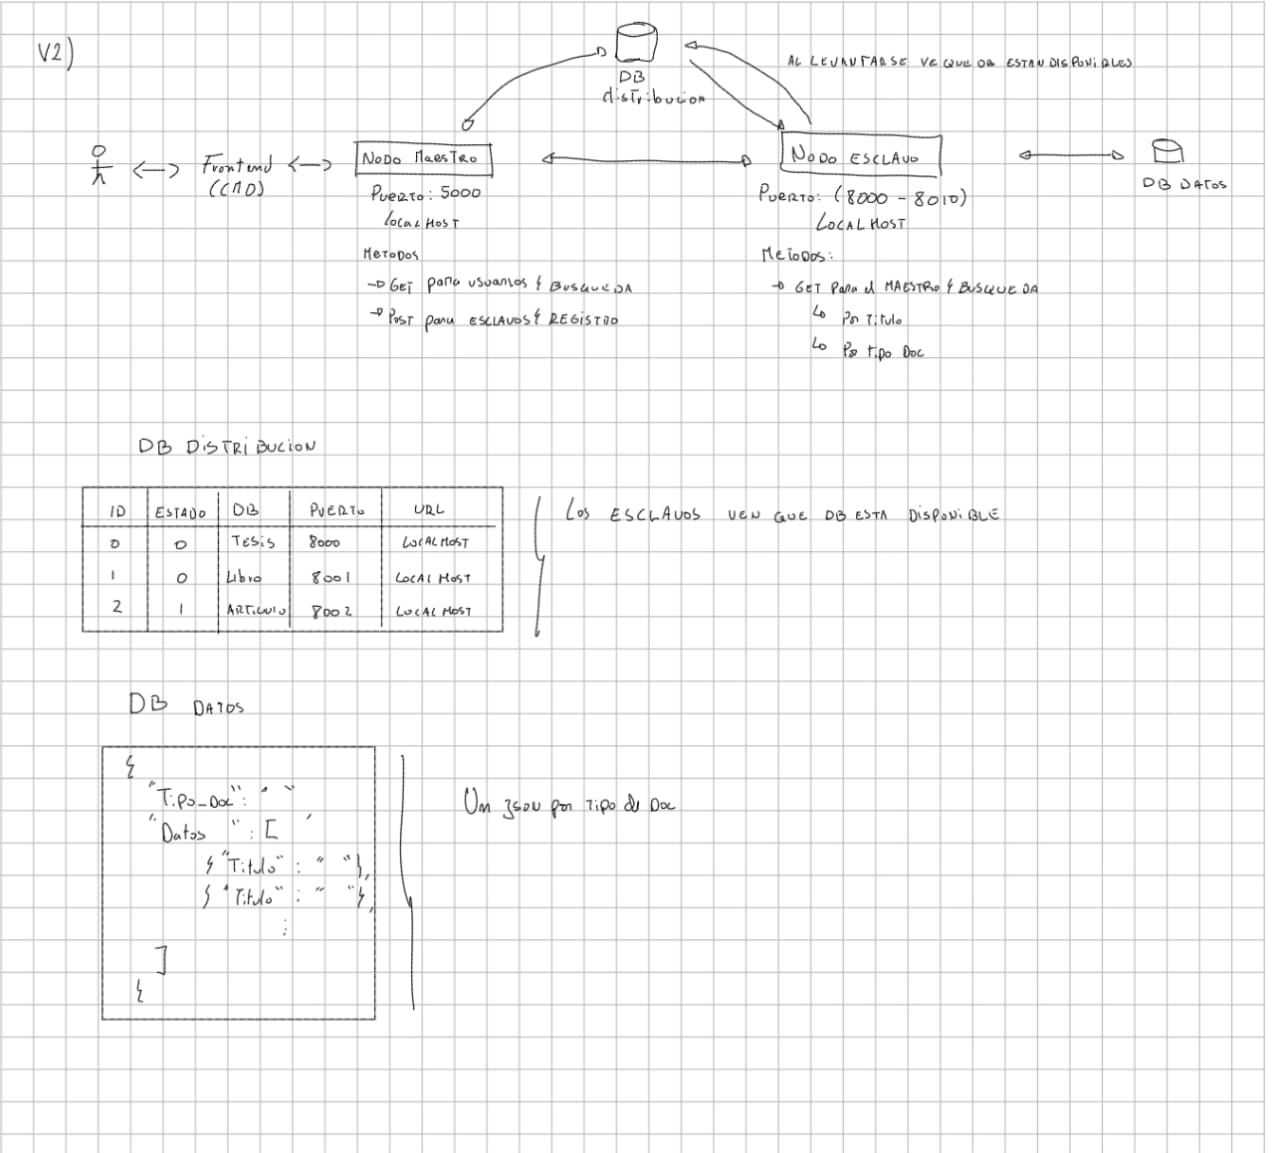 V2)
DB
distribucion
AL LEVANTARSE VE QUE DB ESTAN DISPONIBLES
Frontend
(CMD)
NODO MAESTRO
PUERTO: 5000
LOCALHOST
METODOS
→ GET para usuarios y BUSQUEDA
→ POST para ESCLAVOS y REGISTRO
NODO ESCLAVO
PUERTO: (8000 - 8010)
LOCALHOST
METODOS:
→ GET Para el MAESTRO y BUSQUEDA
↳ Por Titulo
↳ Por tipo Doc
DB DATOS
DB DISTRIBUCION
ID ESTADO DB PUERTO URL
0 0 TESIS 8000 LOCALHOST
1 0 Libro 8001 LOCALHOST
2 1 ARTICULO 8002 LOCALHOST
Los ESCLAVOS VEN QUE DB ESTA DISPONIBLE
DB DATOS
{
"Tipo_Doc": " "
"Datos ": [
{"Titulo" : " "},
{"Titulo" : " "},
⋮
]
}
Un JSON por Tipo de Doc